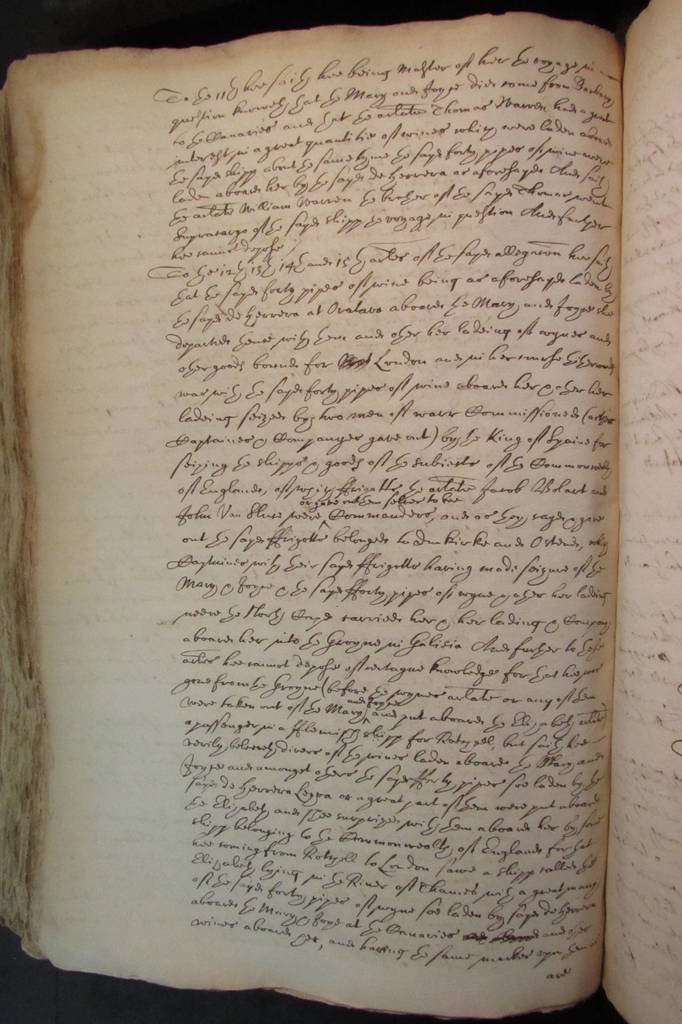 To the 11th hee saith hee being Master of her the voyage in
question knoweth that the Mary and Joyce did come from
to the Canaries and that the arlate Thomas Warren had a great
interest in a great quantitie of wines which were laden aboard
the sayd shipp about the same tyme the sayd forty pipes of wine were
laden aboard her by the sayd de Herrera as aforesayd And saith
the arlate William Warren the brother of the sayd Thomas went
Supracargo of the sayd shipp the voyage in question And further
hee cannot depose /
To the 12th 13th 14th and 15th arles of the sayd allegation hee saith
that the sayd forty pipes of wine being as aforesayd laden by
the sayd de Herrera at Oratava aboard the Mary and Joyce shee
departed thence with them and other her lading of wynes and
other goods bound for London and in her course thitherward
was with the sayd forty pipes of wine aboard her & other her
lading seized by two men of warr Commissioned (as the
Captaines & Companyes gave out) by the King of Spaine for
seizing the shipps & goods of the subiects of the Commonwealth
of England, of which ffrigotts the arlate Jacob and
or gave out them selves to bee
John Van were Commanders, and as they sayd & gave
out the sayd ffrigotts belonged to dunkirke and Ostend, which
Captaines with their sayd ffrigotts having made seizure of the
Mary & Joyce & the sayd fforty pipes of wyne & other her lading
neere the North Cape carried her & her lading & Company
aboard her into the Groyne in Galisia And further to these
arles hee cannot depose of certayne knowledge for that hee was
gone from the Groyne (before the wynes arlate or any of them
and Joyce
were taken out of the Mary and put aboard the Elizabeth arlate)
a passenger in a fflemish shipp for , but saith hee
verily beleeveth divers of the wines laden aboard the Mary and
Joyce and amongst others the sayd fforty pipes soe laden by the
sayd de Herrera or a great part of them were put aboard
the Elizabeth and shee surprized with them aboard her by some
shipp belonging to the Commonwealth of England for that
hee coming from to London sawe a shipp called the
Elizabeth lying in the River of Thames with a great many
of the sayd forty pipes of wyne soe laden by sayd de Herrera
aboard the Mary & Joyce at the Canaries and other
wines aboard her, and having the same markes upon them
are